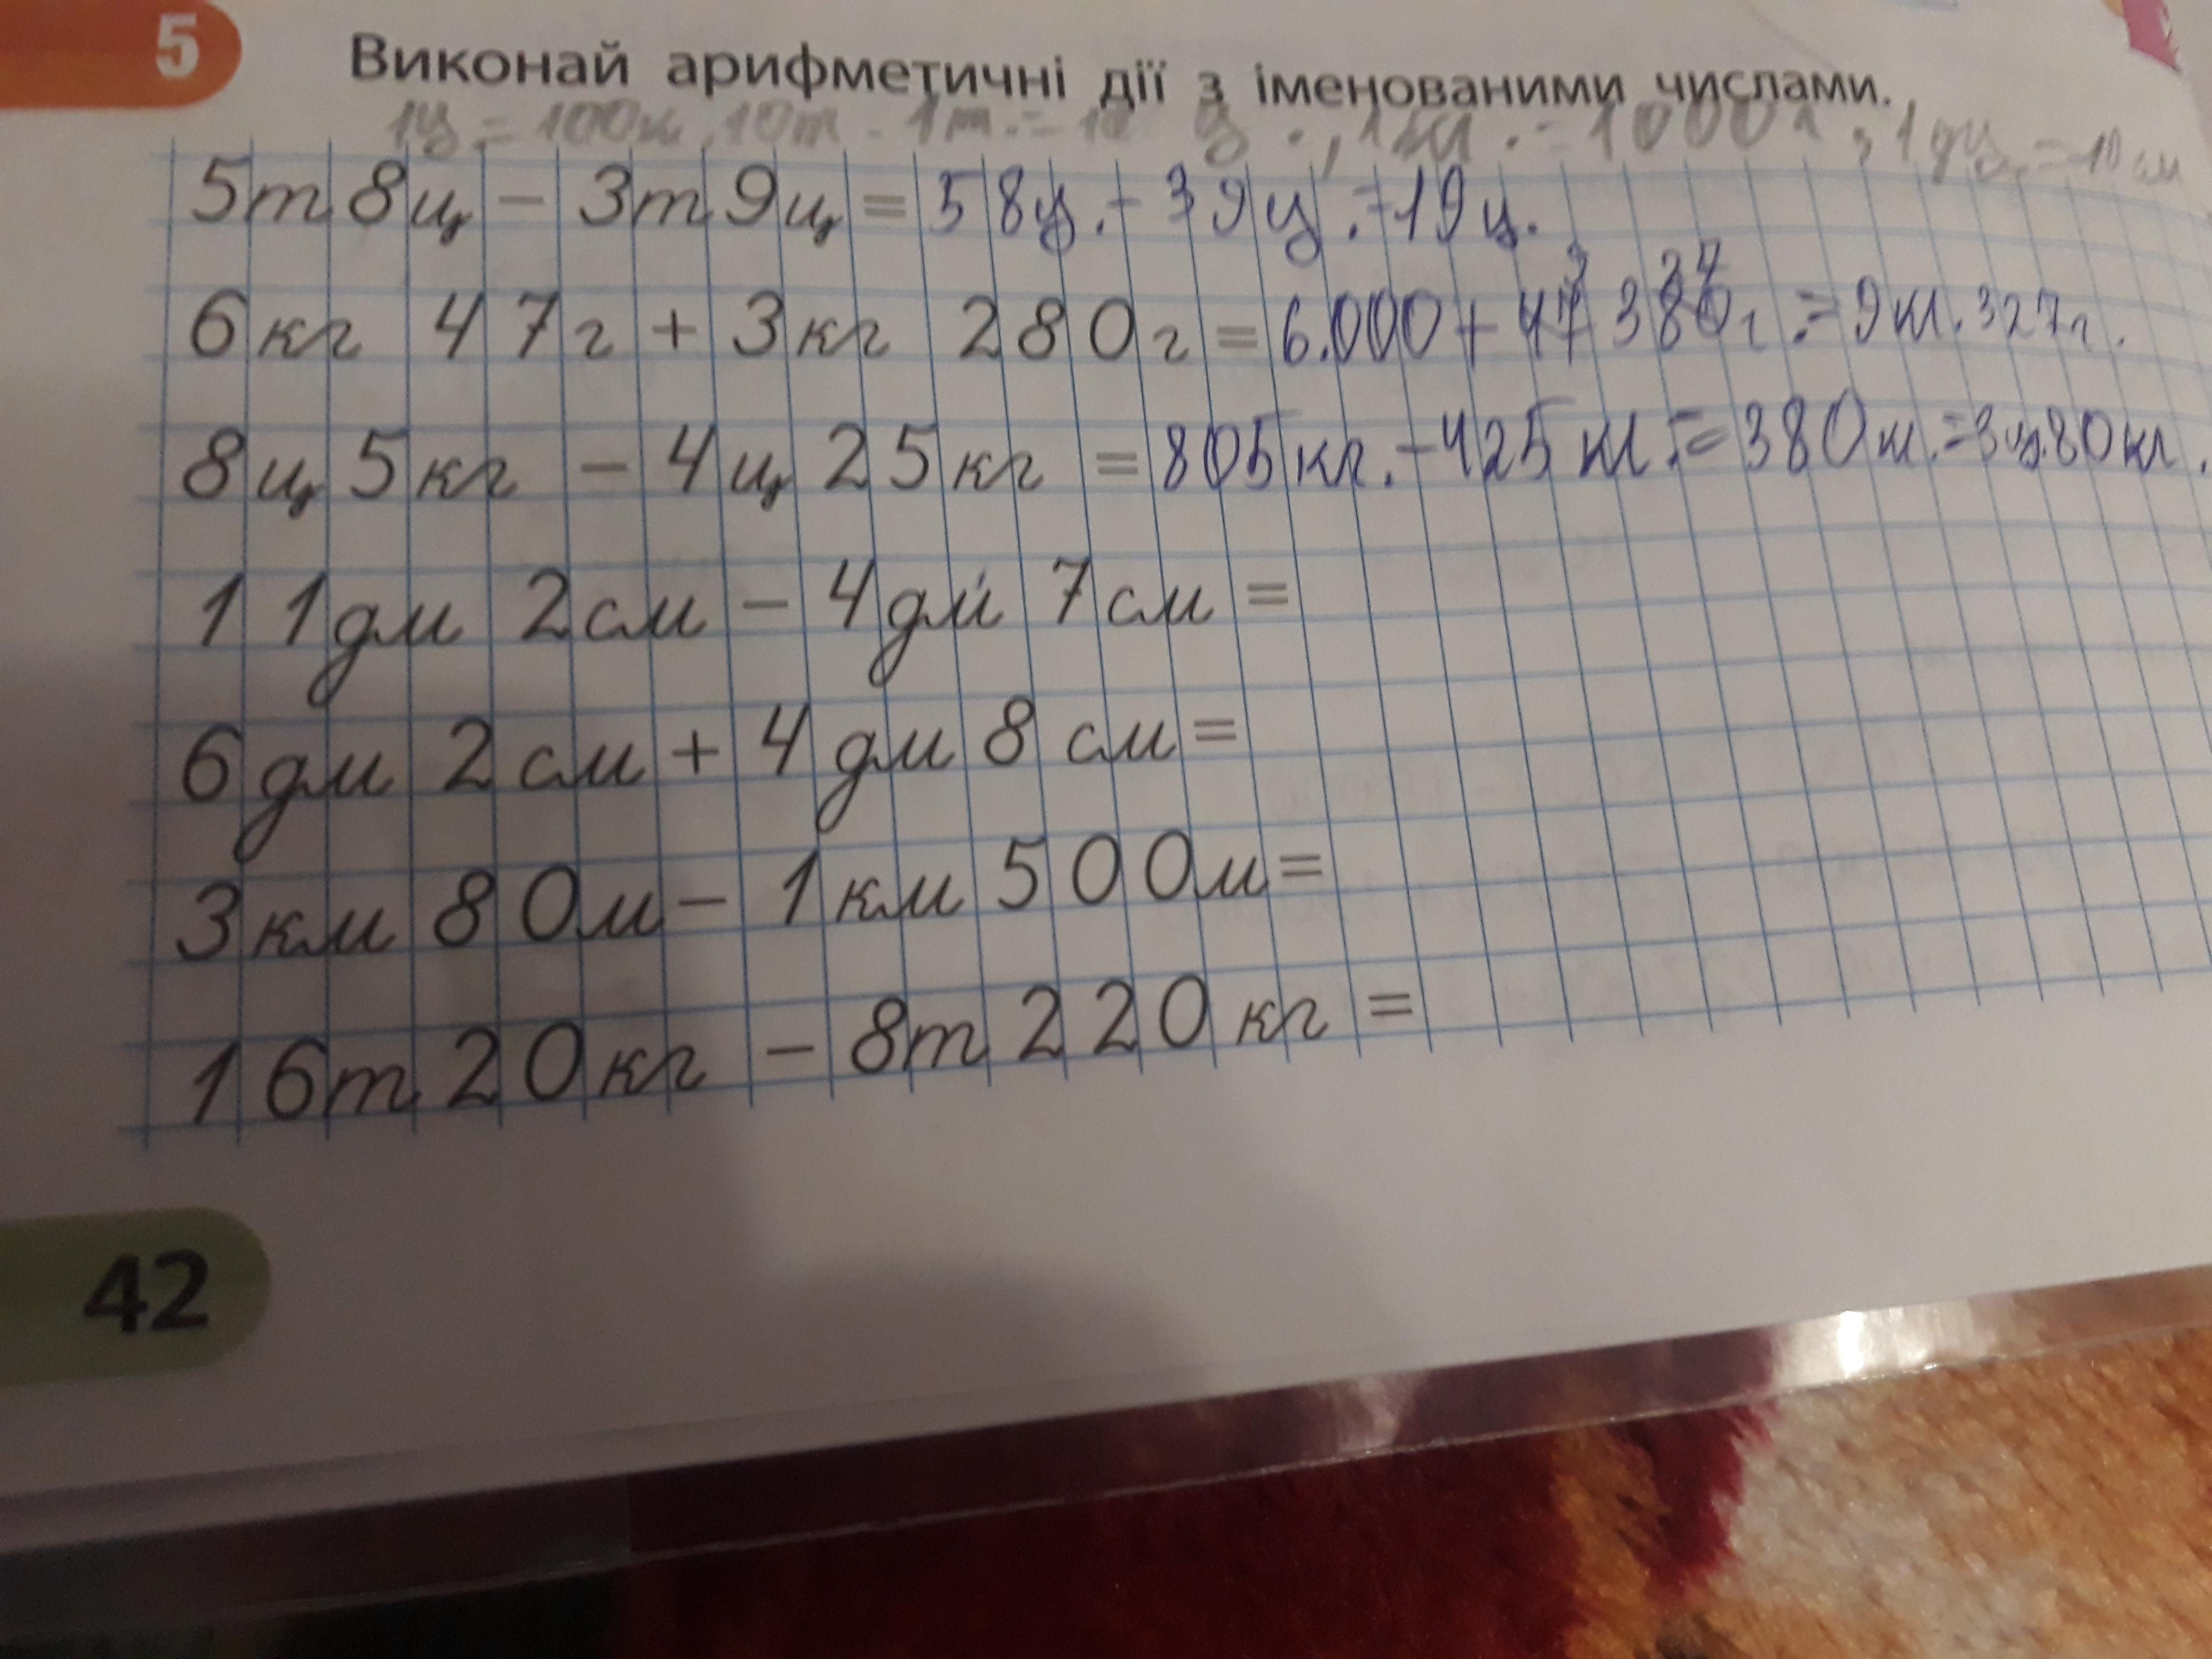 5
Виконай арифметичні дії з іменованими числами.
1ц = 100к
5т 8ц – 3т 9ц = 58ц. – 39ц. = 19ц.
6кг 47г + 3кг 280г = 6.000 + г. = 9кг. 327г.
8ц 5кг – 4ц 25кг = 805кг. – 425кг. = 380кг. = 3ц. 80кг.
11дм 2см – 4дм 7см =
6дм 2см + 4дм 8см =
3км 80м – 1км 500м =
16т 20кг – 8т 220кг =
42